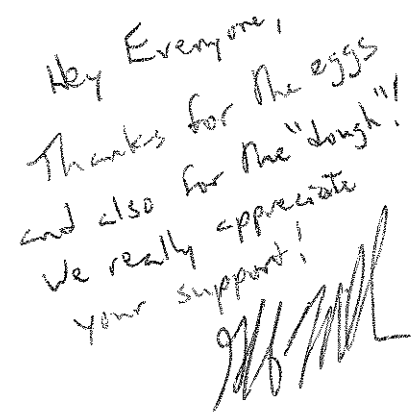 Hey Everyone,
Thanks for the eggs
and also for the "dough"!
We really appreciate
your support!